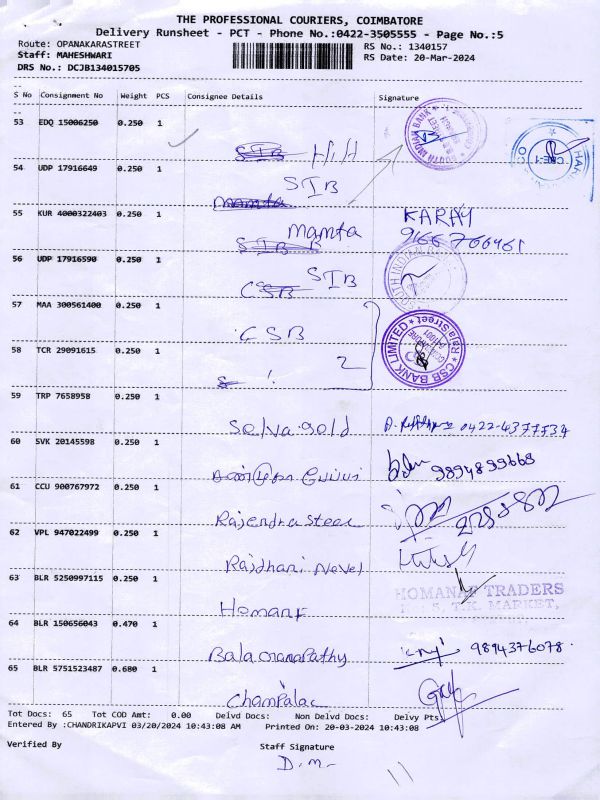 THE PROFESSIONAL COURIERS, COIMBATORE
Delivery Runsheet - PCT - Phone No.:0422-3505555 - Page No.:5
Route: OPANAKARASTREET
Staff: MAHESHWARI
DRS No.: DCJB134015705
RS No.: 1340157
RS Date: 20-Mar-2024
S No Consignment No Weight PCS Consignee Details Signature
53 EDQ 15006250 0.250 1
SOUTH INDIAN BANK
54 UDP 17916649 0.250 1
STB
55 KUR 4000322403 0.250 1 KARAY
Mamta
56 UDP 17916590 0.250 1 STB
SOUTH INDIAN
57 MAA 300561400 0.250 1
CSB
CSB BANK LIMITED
Raja Street
58 TCR 29091615 0.250 1
2
59 TRP 7658958 0.250 1
Selva gold 0422-4377734
60 SVK 20145598 0.250 1
9894899668
61 CCU 900767972 0.250 1
Rajendra Steel
62 VPL 947022499 0.250 1
Rajdhani Novel
63 BLR 5250997115 0.250 1
HOMANAF TRADERS
T.K. MARKET,
64 BLR 150656043 0.470 1
Bala Ganapathy 9894376078
65 BLR 5751523487 0.680 1
Champalal
Tot Docs: 65 Tot COD Amt: 0.00 Delvd Docs: Non Delvd Docs: Delvy Pts
Entered By :CHANDRIKAPVI 03/20/2024 10:43:08 AM Printed On: 20-03-2024 10:43:08
Verified By Staff Signature
D.M.